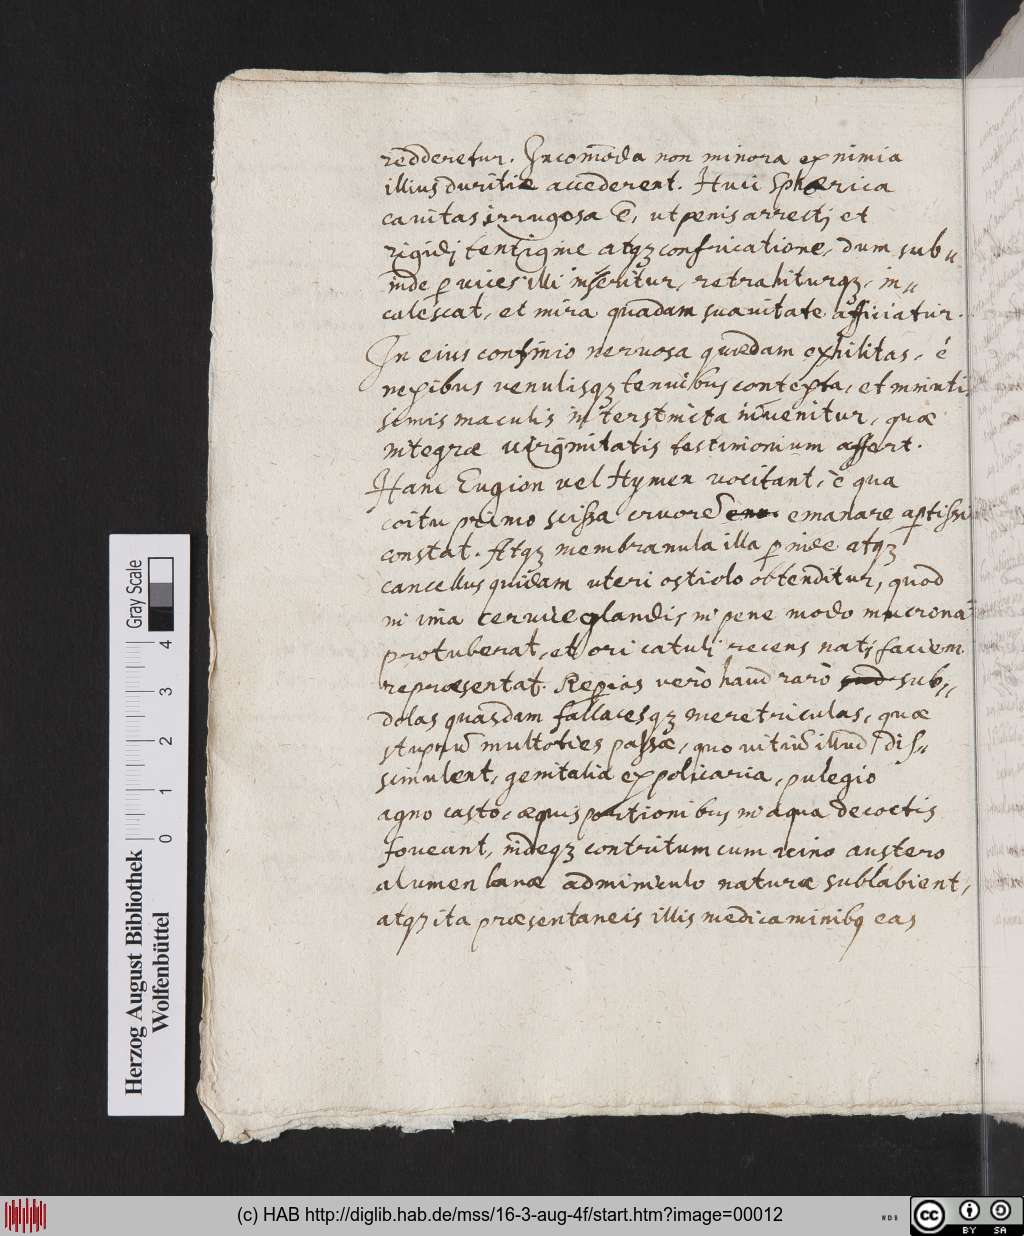 redderetur. Incom̄oda non minora ex nimia
illius duritiæ accederent. Huic Sphærica
cauitas irrugosa ē, ut penis arrectj et
rigidj tentigine atqꝫ confricatione, dum sub„
inde ꝑ uices illi inseritur, retrahiturqꝫ, in„
calescat, et mira quadam suauitate afficiatur.
In eius confinio neruosa quædam exhilitas, é
nexibus uenulisqꝫ tenuibus contexta, et minuti„
simis maculis interstincta inuenitur, quæ
integræ uirginitatis testimonium affert.
Hanc Eugion vel Hymen vocitant, è qua
coitu primo scissa cruorē emanare aptissi
constat. Atqꝫ membranula illa ꝑinde atqꝫ
cancellus quidam uteri ostiolo obtenditur, quod
in ima ceruice glandis in pene modo mucronā
protuberat, et ori catulj recens natj faciem
repræsentat. Reperias verò haud rarò sub„
dolas quasdam fallacesqꝫ meretriculas, quæ
stuprū multoties passæ, quo uitiū illud dis„
simulent, genitalia ex policaria, pulegio
agno casto, æquis portionibus in aqua decoctis
foueant, indeqꝫ contritum cum uino austero
alumen lanæ adminiculo naturæ sublabient,
atqꝫ ita præsentaneis illis medicaminibꝙ eas
Herzog August Bibliothek
Wolfenbüttel
0 1 2 3 4
Gray Scale
(c) HAB http://diglib.hab.de/mss/16-3-aug-4f/start.htm?image=00012
WDB
cc BY SA